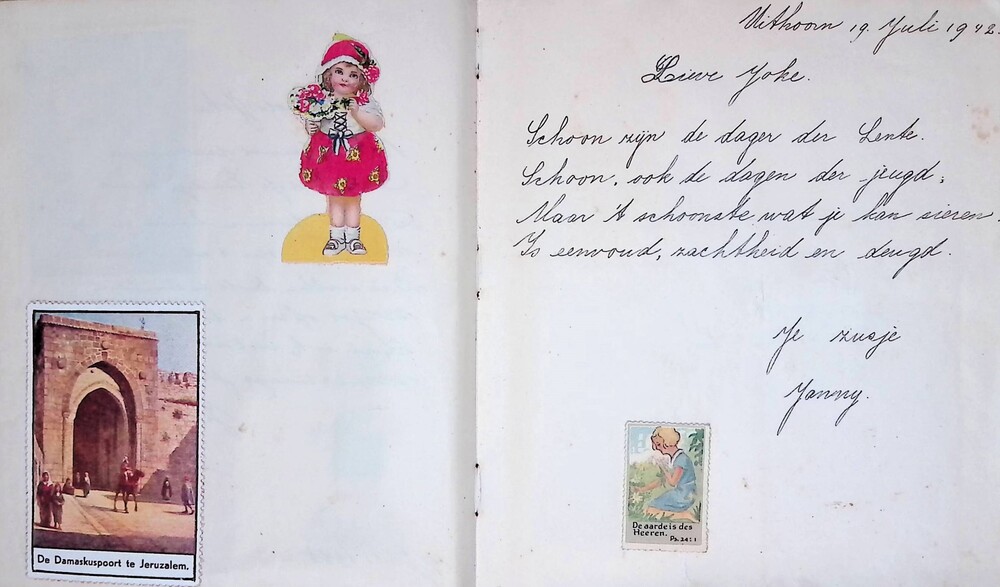 De Damaskuspoort te Jeruzalem.
Uithoorn 19 Juli 1942.
Lieve Joke.
Schoon zijn de dagen der Lente.
Schoon, ook de dagen der jeugd,
Maar 't schoonste wat je kan sieren
Is eenvoud, zachtheid en deugd.
Je zusje
Janny.
De aarde is des
Heeren.
Ps. 24:1